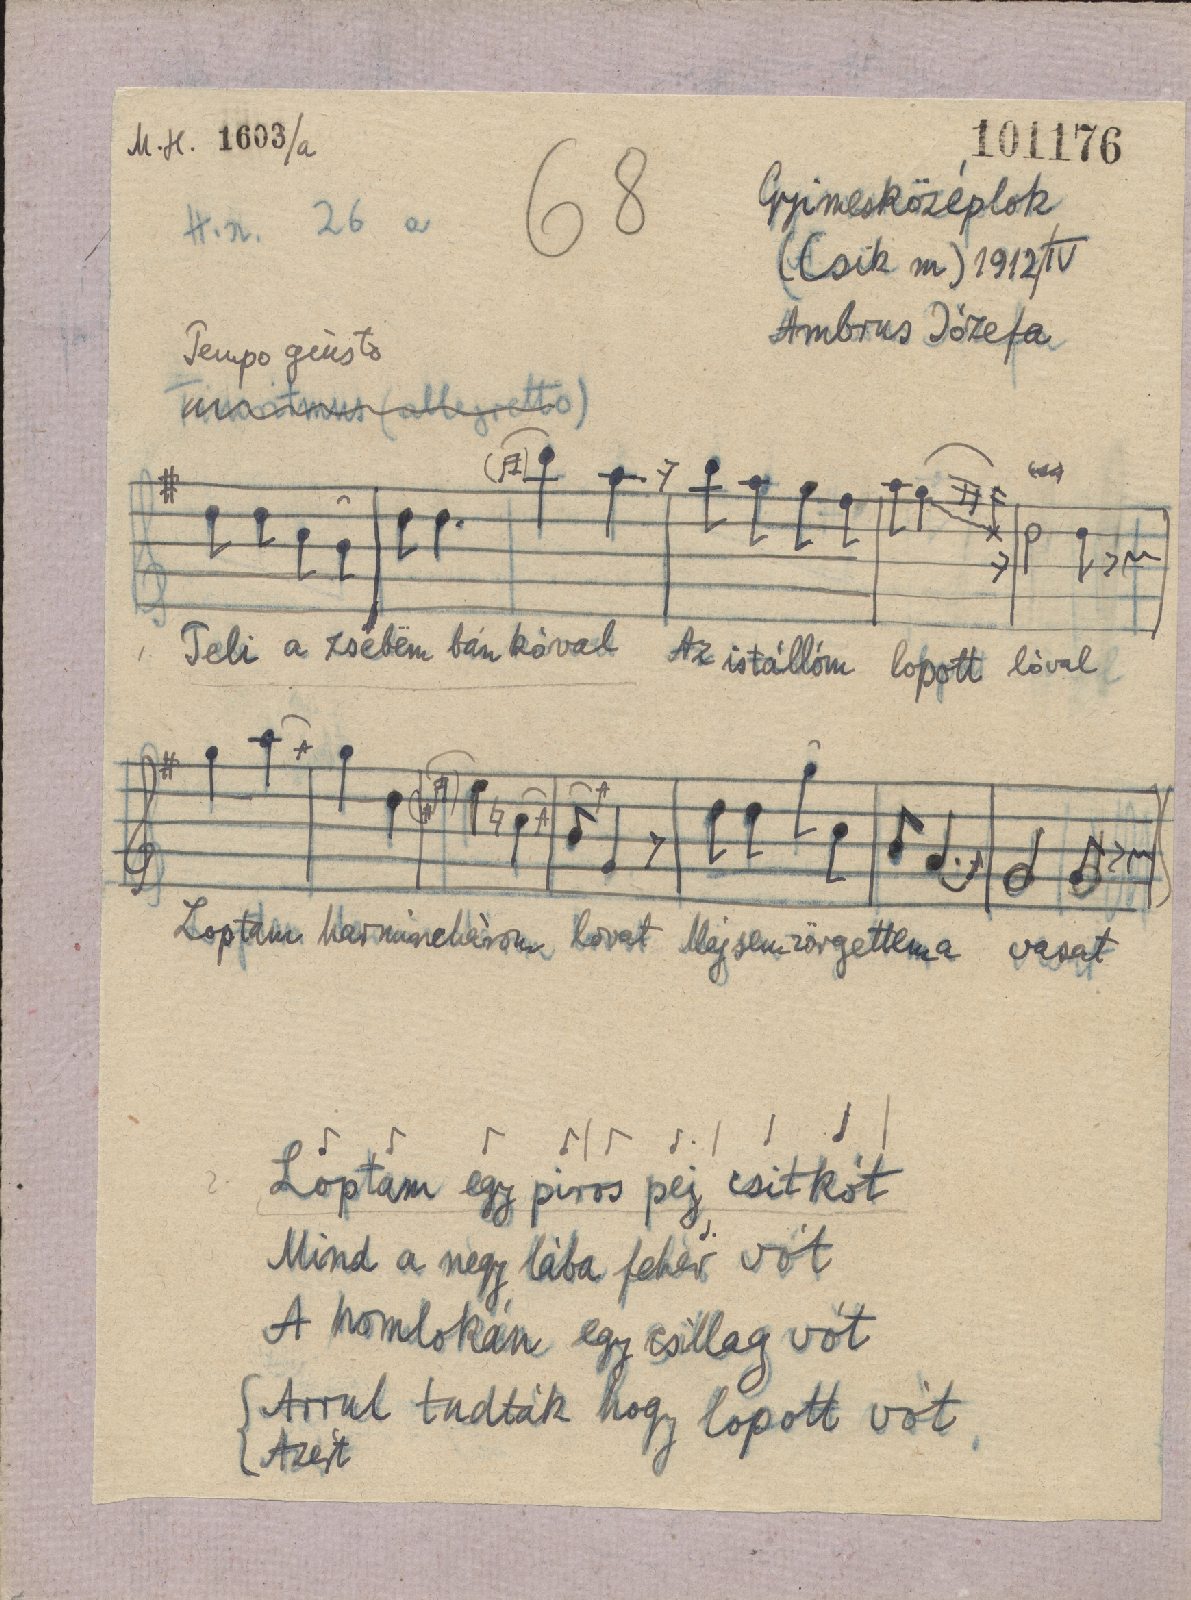 M.H. 1603/a
101176
H.n. 26 a
68
Gyimesközéplok
(Csik m) 1912/IV
Ambrus Józefa
Tempo giusto
(allegretto)
1. Teli a zsebëm bánkóval Az istállóm lopott lóval
Loptam harminchárom lovat Mégsem zörgettem a vasat
2. Loptam egy piros pej csitkót
Mind a négy lába fehér vót
A homlokán egy csillag vót
Arrul tudták hogy lopott vót.
Azért